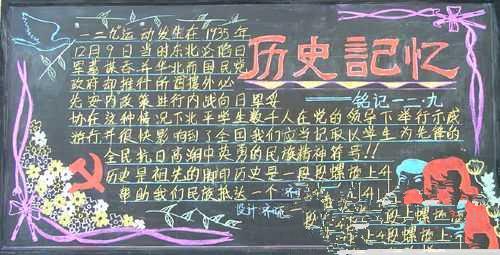 一二九运动发生在1935年
12月9日当时东北沦陷日
军蓄谋吞并华北而国民党
政府却推行的攘外必
先安内政策进行内战向日
历史記忆
——铭记一二·九
协在这种情况下北平学生数千人在党的领导下举行示威
游行并很快影响到了全国我们应当记取以学生为先锋的
全民抗日高潮中英勇的民族精神符号!!
历史是祖先的脚印历史是一段
帮助我们民族抵达一个
设计: